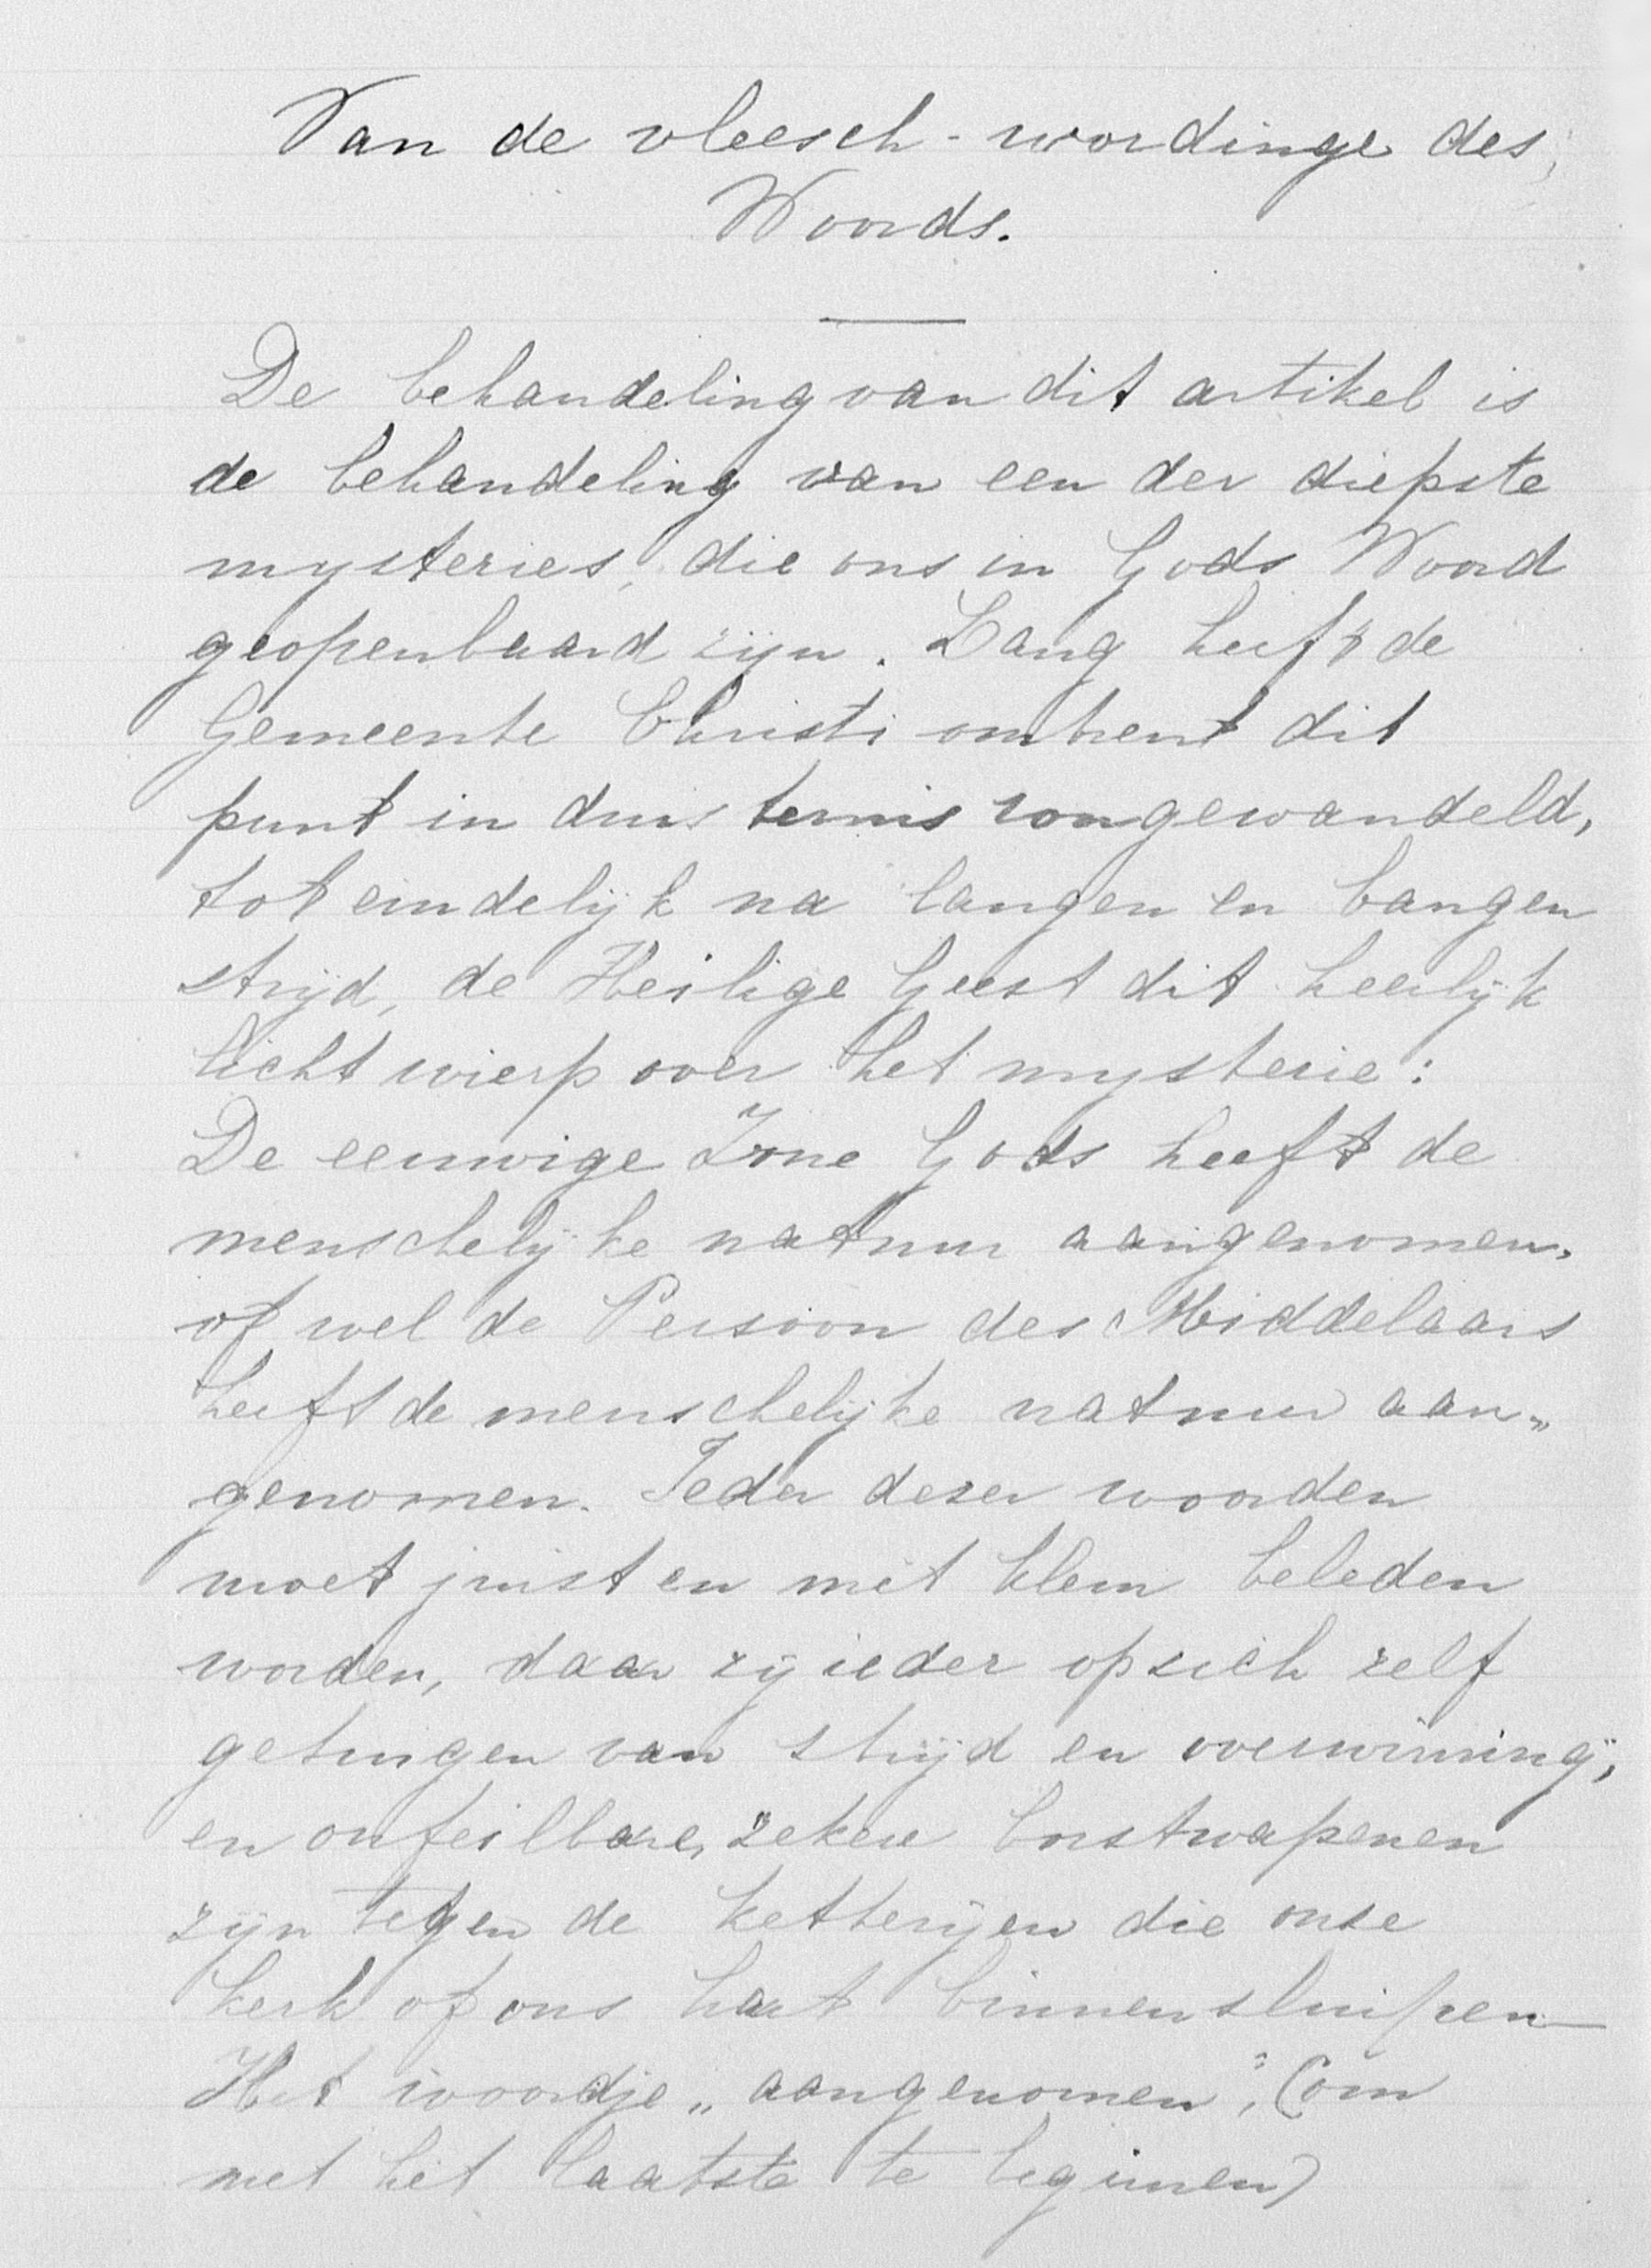 Van de vleesch-wordinge des
Woords.
De behandeling van dit artikel is
de behandeling van een der diepste
mysteries, die ons in Gods Woord
geopenbaard zijn. Lang heeft de
Gemeente Christi omtrent dit
punt in duisternis rongewandeld,
tot eindelijk na langen en bangen
strijd, de Heilige Geest dit heerlijk
licht wierp over het mysterie:
De eeuwige Zone Gods heeft de
menschelijke natuur aangenomen,
of wel de Persoon des Middelaars
heeft de menschelijke natuur aan„
genomen. Ieder dezer woorden
moet juist en met klem beleden
worden, daar zij ieder op zich zelf
getuigen van strijd en overwinning,
en onfeilbare, zekere borstwapenen
zijn tegen de ketterijen die onze
kerk of ons hart binnensluipen
Het woordje „aangenomen", (om
met het laatste te beginnen)